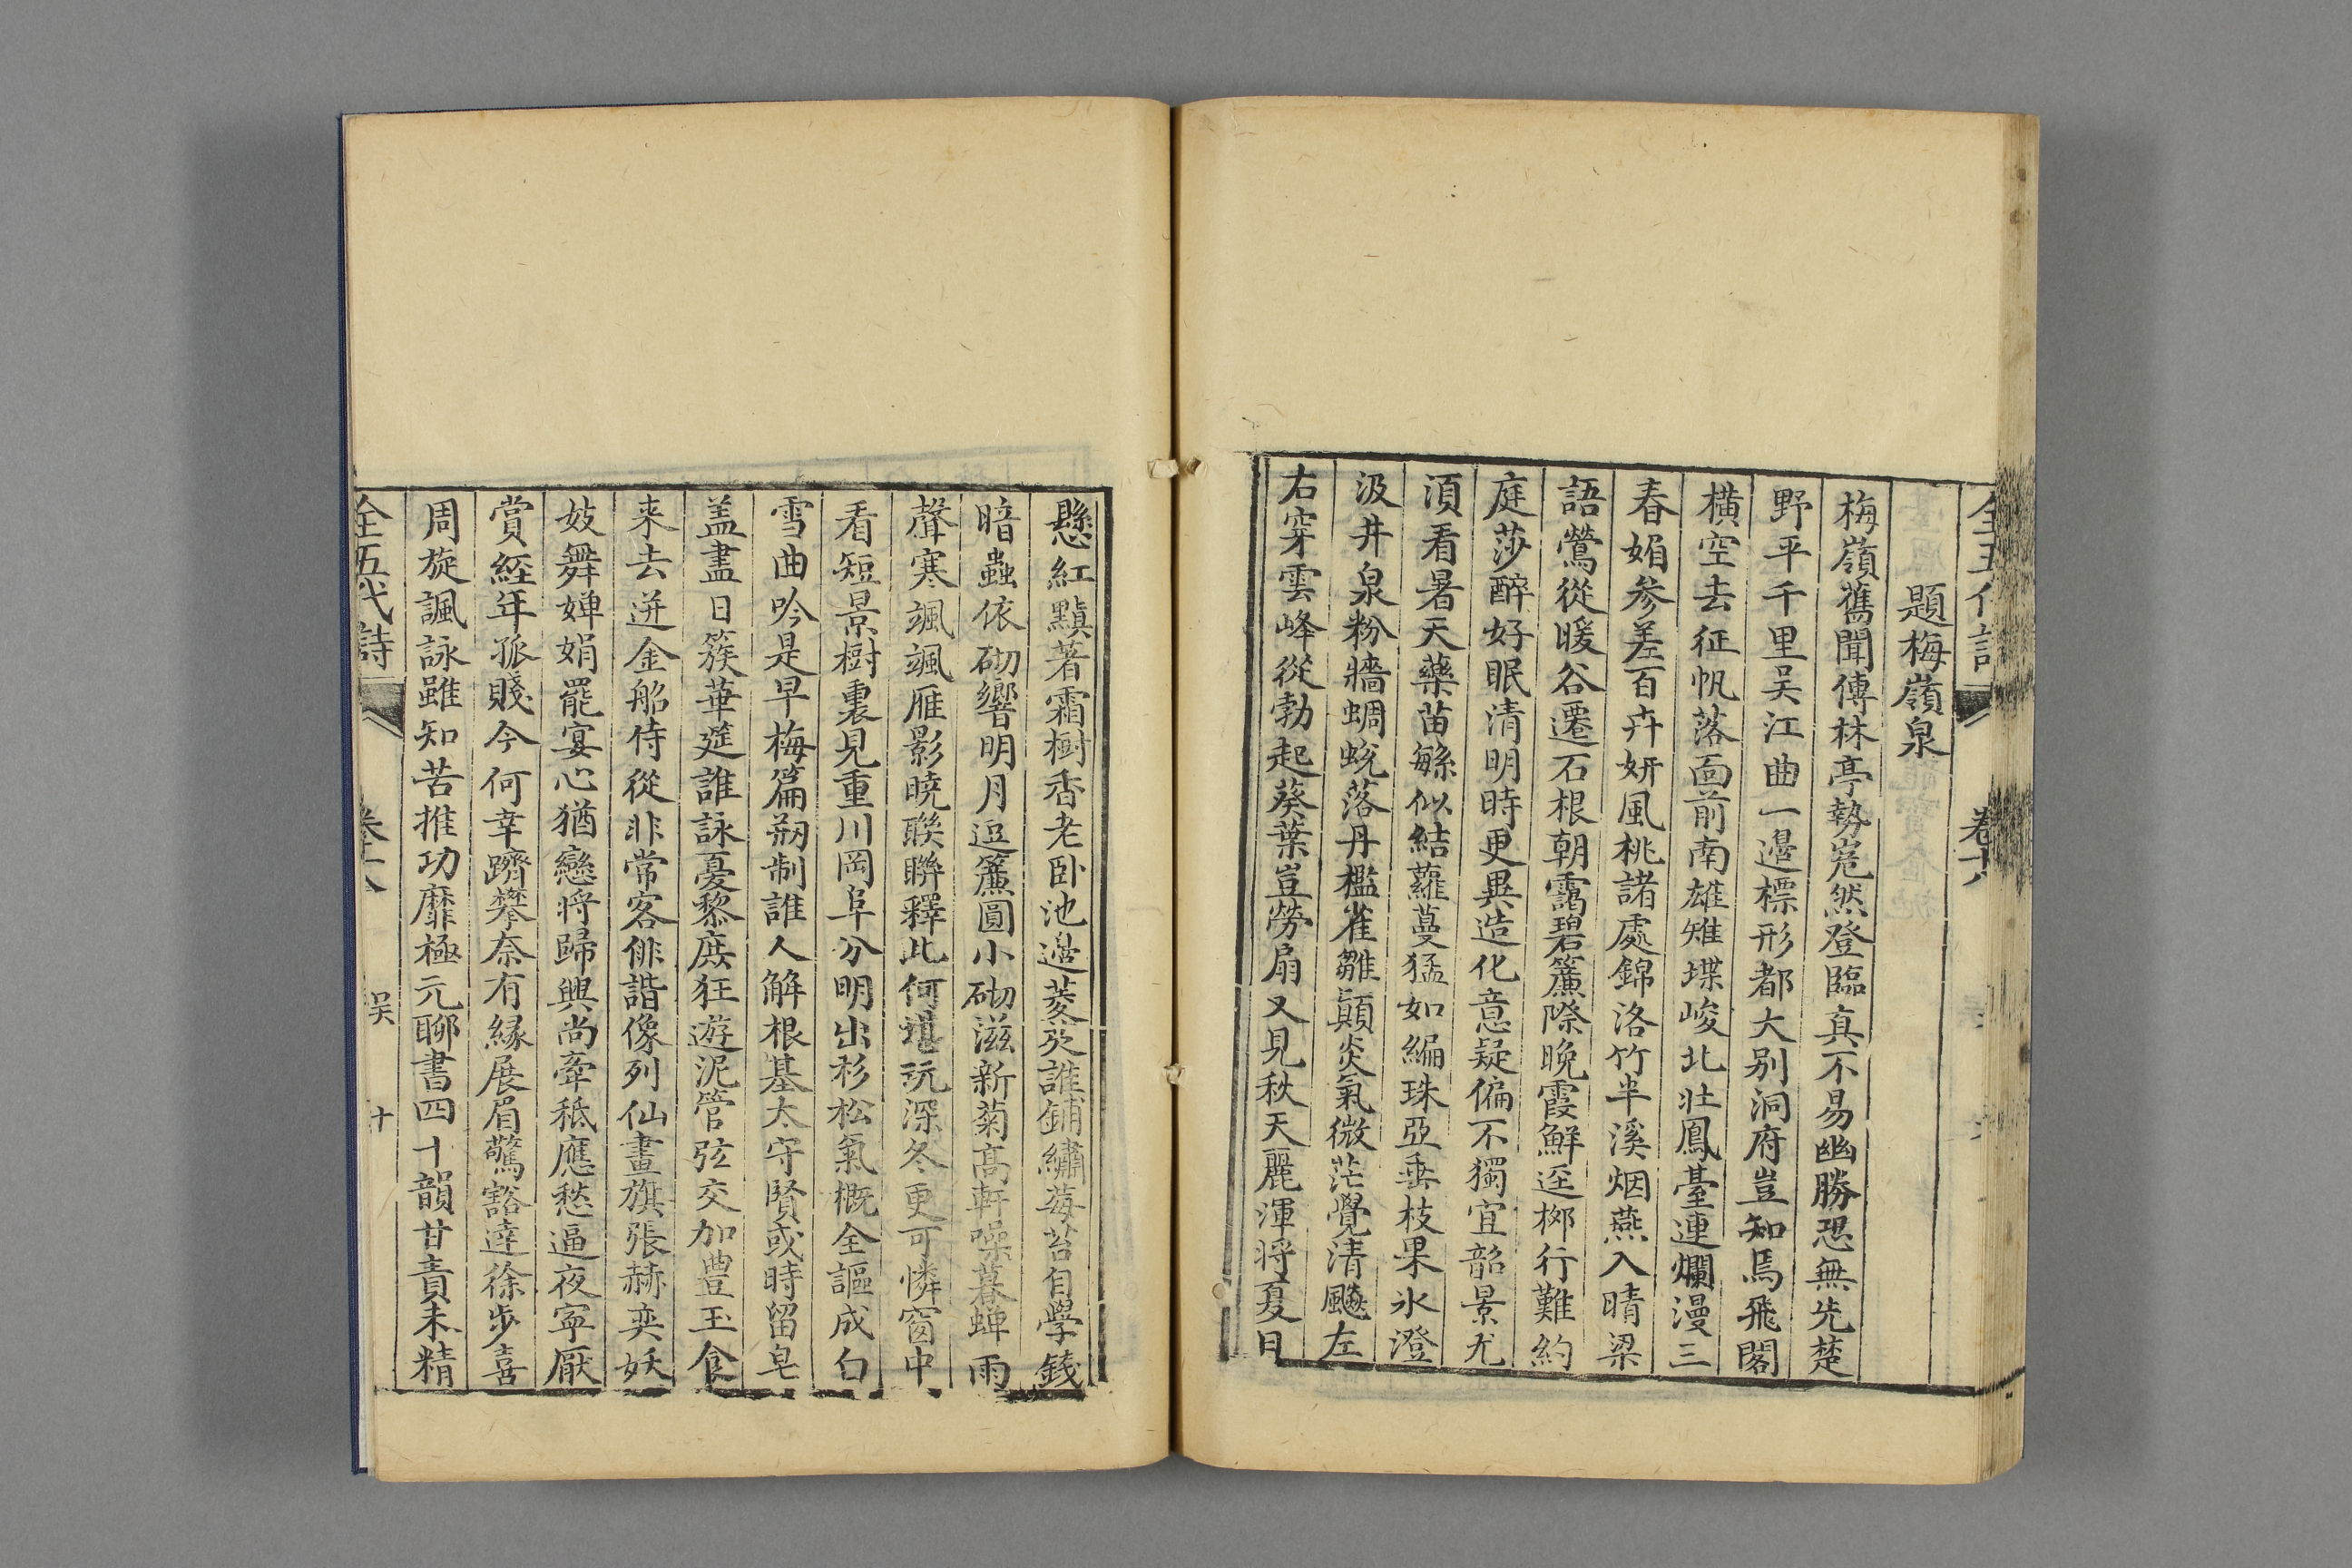 全五代詩 卷十八
題梅嶺泉
梅嶺舊聞傳林亭勢嵬然登臨真不易幽勝恐無先楚
野平千里吴江曲一邉標形都大别洞府豈知焉飛閣
橫空去征帆落面前南雄雉堞峻北壯鳳臺連爛漫三
春媚參差百卉妍風桃諸處錦洛竹半溪烟燕入晴梁
語鶯從暖谷遷石根朝靄碧簾際晚霞鮮逕栁行難約
庭莎醉好眠清明時更異造化意疑偏不獨宜韶景尤
湏看暑天藥苗繁似結蘿蔓猛如編珠亞垂枝果氷澄
汲井泉粉牆蜩蛻落丹檻雀雛顛炎氣微茫覺清飈左
右穿雲峰從勃起葵葉豈勞扇又見秋天麗渾將夏日
懸紅黰著霜樹香老卧池邉菱芡誰鋪繡莓苔自學錢
暗蟲依砌響明月逗簾圓小砌滋新菊高軒噪暮蟬雨
聲寒颯颯雁影曉聮聨釋此何堪玩深冬更可憐窗中
看短景樹裏見重川岡阜分明出杉松氣概全謳成白
雪曲吟是早梅篇剏制誰人解根基太守賢或時留皂
盖盡日簇華筵誰詠憂黎庶狂遊泥管弦交加豊玉食
来去迸金船侍從非常客俳諧像列仙畫旗張赫奕妖
妓舞婵娟罷宴心猶戀將歸興尚牽秪應愁逼夜寜厭
賞經年孤賤今何幸躋攀奈有緣展眉驚豁達徐步喜
周旋諷詠雖知苦推功靡極元聊書四十韻甘責未精
全五代詩 卷十八 吴 十